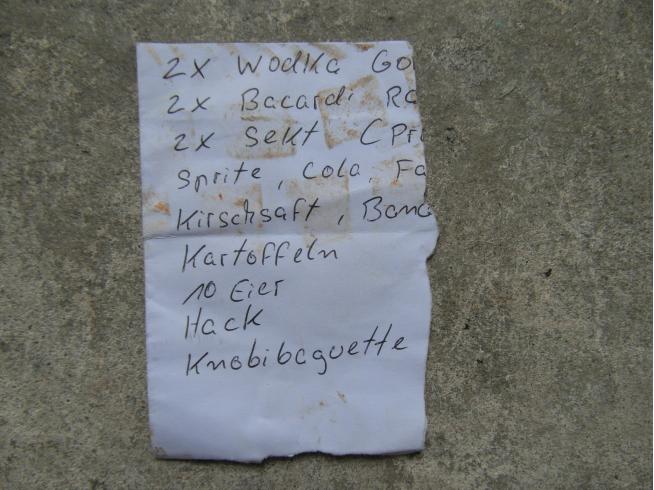 2x Wodka Go
2x Bacardi Ra
2x Sekt (Pri
Sprite, Cola, Fa
Kirschsaft, Bana
Kartoffeln
10 Eier
Hack
Knobibaguette